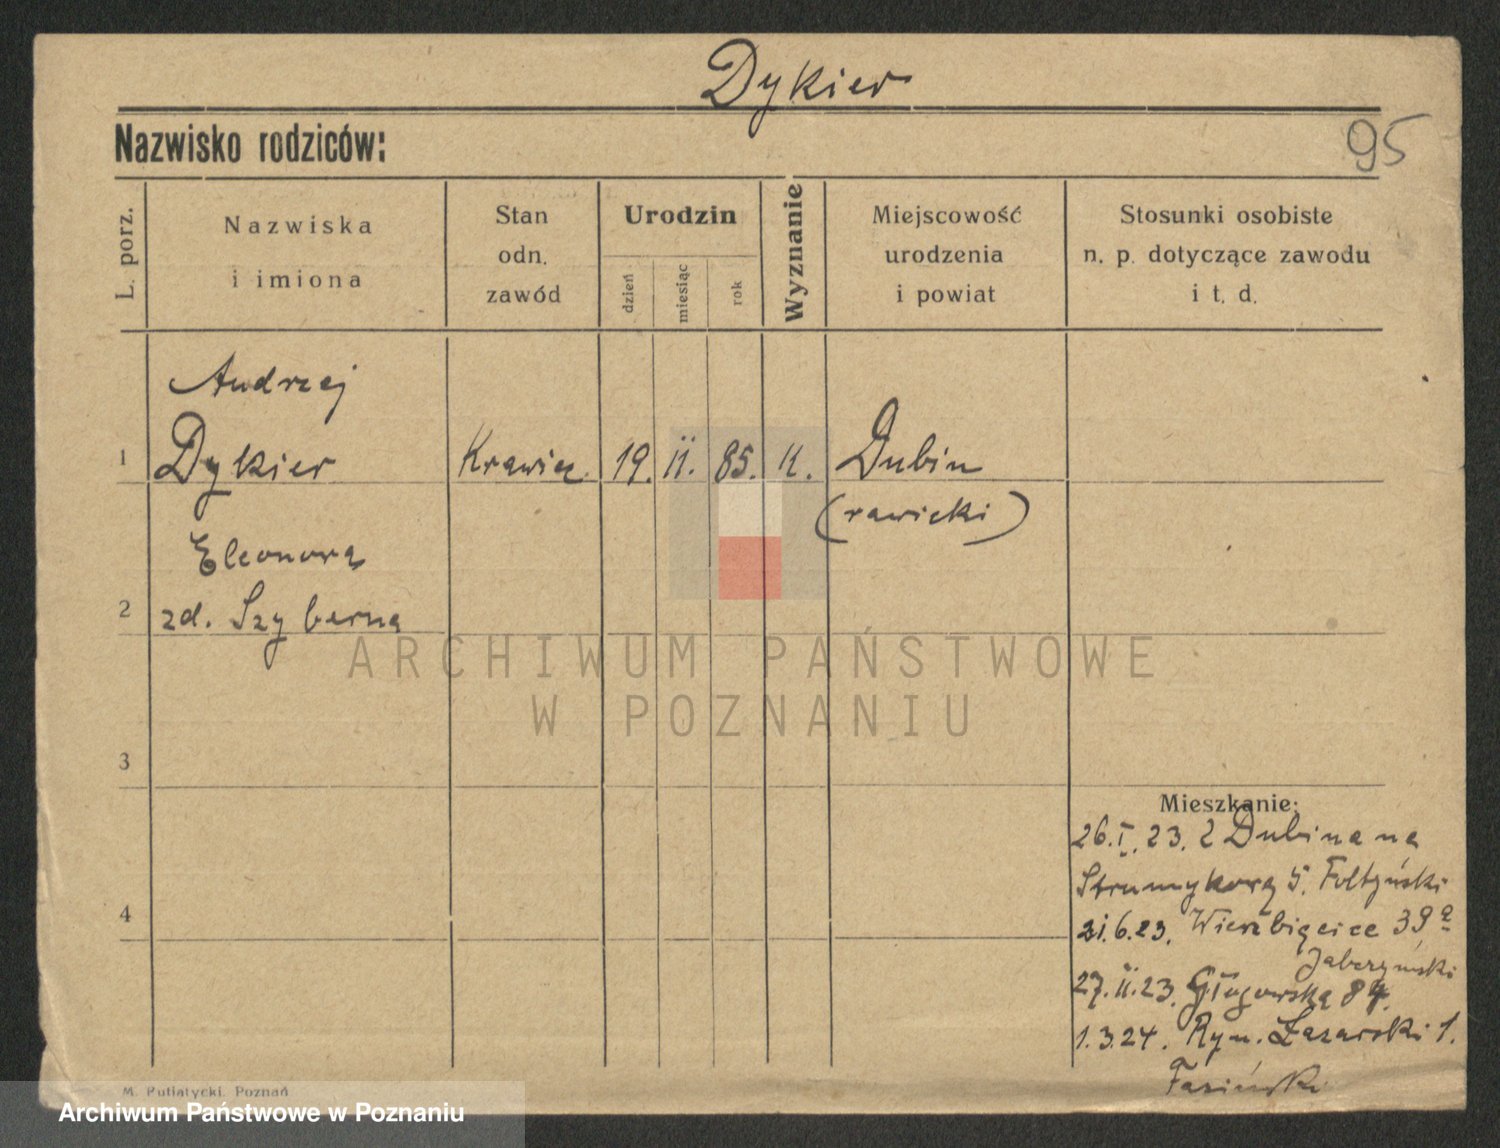 Dykier
Nazwisko rodziców:
95
L. porz.
Nazwiska
i imiona
Stan
odn.
zawód
Urodzin
dzień
miesiąc
rok
Wyznanie
Miejscowość
urodzenia
i powiat
Stosunki osobiste
n. p. dotyczące zawodu
i t. d.
Andrzej
1 Dykier Krawiec 19. II. 85. K. Dubin
(rawicki)
Eleonora
2 zd. Szyberna
ARCHIWUM PAŃSTWOWE
W POZNANIU
3
Mieszkanie:
26.I.23. z Dubina na
Strumykową 5.
4
21.6.23. Wierzbięcice 39a
27.II.23. Głogowska 84.
1.3.24. Ryn. Łazarski 1.
M. Putiatycki, Poznań
Archiwum Państwowe w Poznaniu